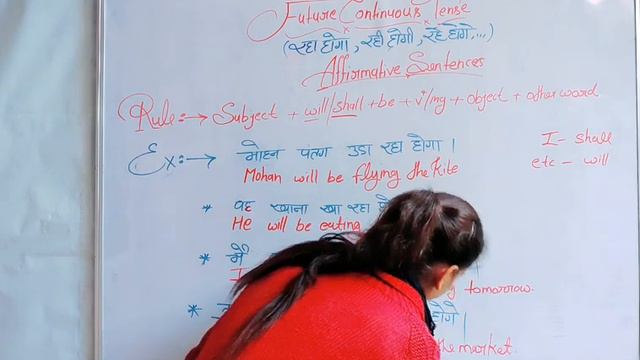 Future Continuous Tense
(रहा होगा, रही होगी, रहे होंगे....)
Affirmative Sentences
Rule:→ Subject + will/shall + be + v'/ing + object + other word
I - shall
etc - will
Ex:→ मोहन पतंग उडा रहा होगा।
Mohan will be flying the Kite
* वह खाना खा रहा
He will be eating
* मैं
I
tomorrow.
*
होंगे।
the market.